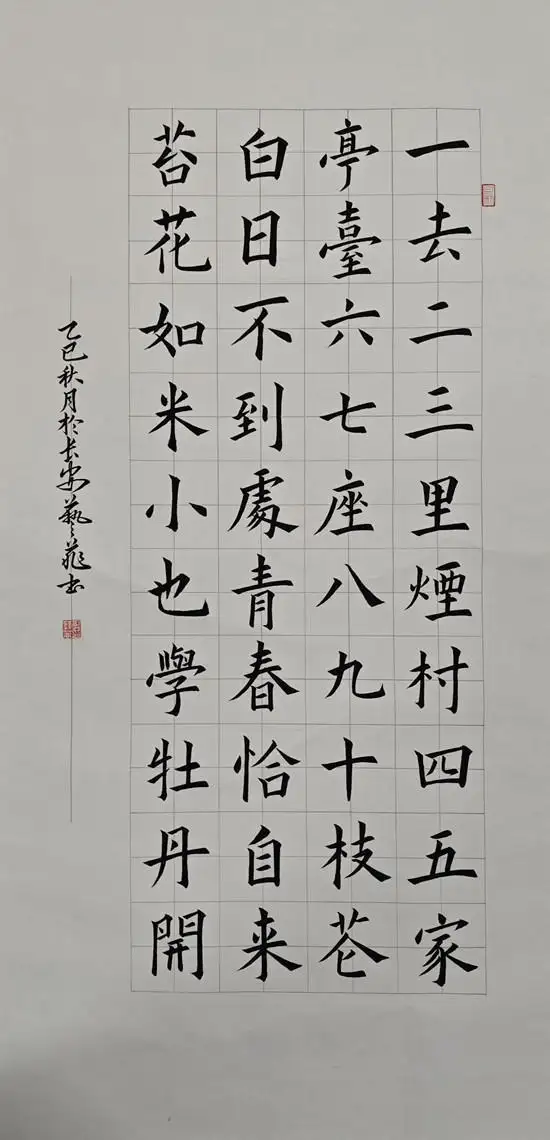 一去二三里煙村四五家
亭臺六七座八九十枝花
白日不到處青春恰自来
苔花如米小也學牡丹開
乙巳秋月於长安藝